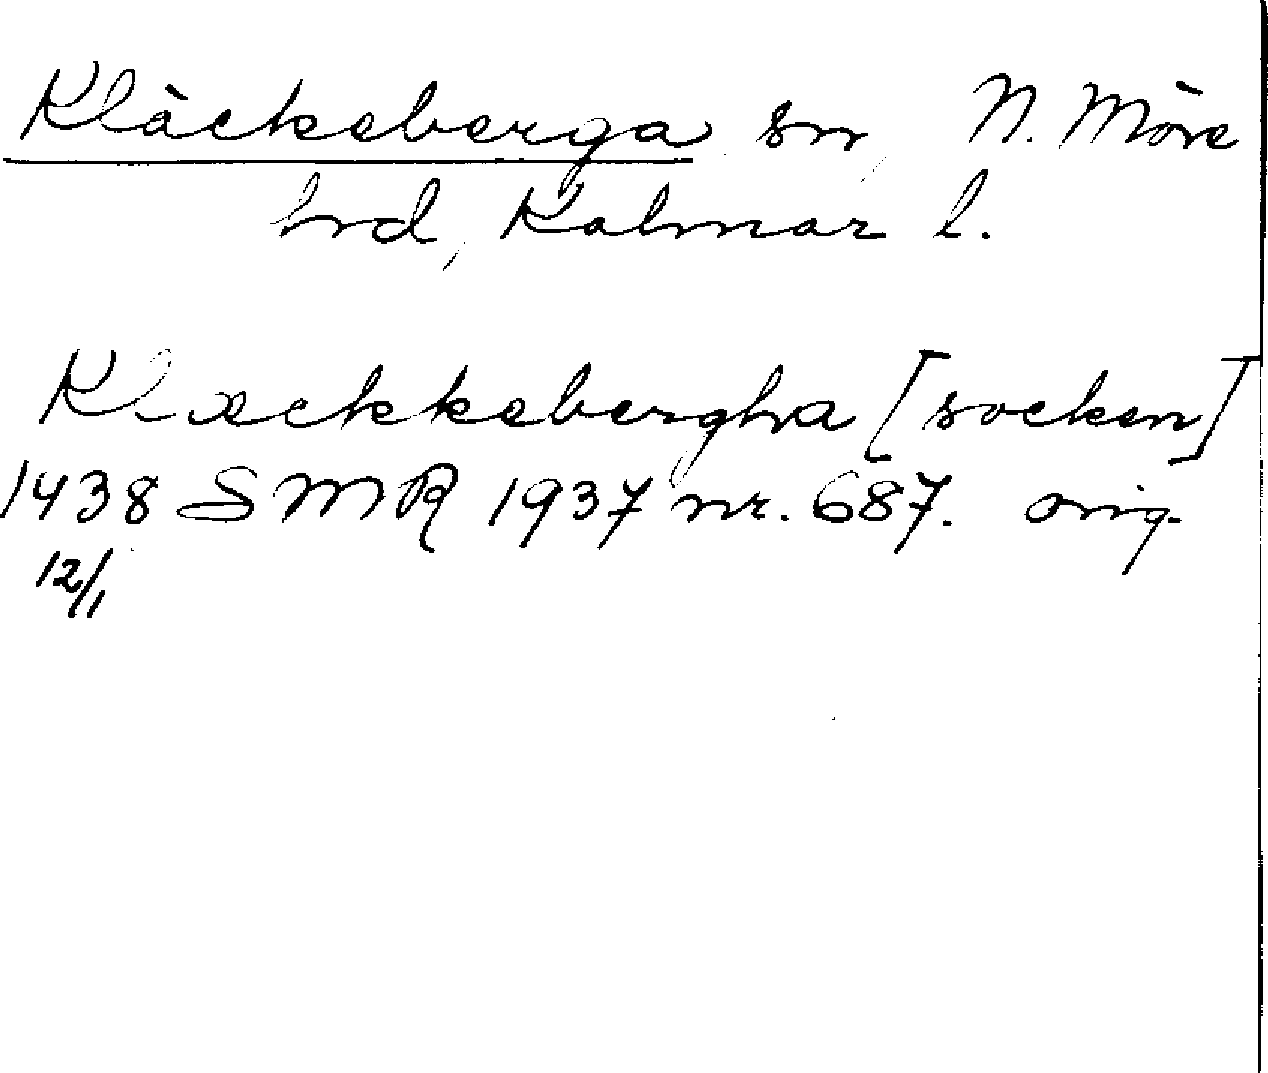 Kläckeberga sn, N. Möre
hrd, Kalmar l.
Klæckkebergha [socken]
1438 SMR 1937 nr. 687. orig.
12/1